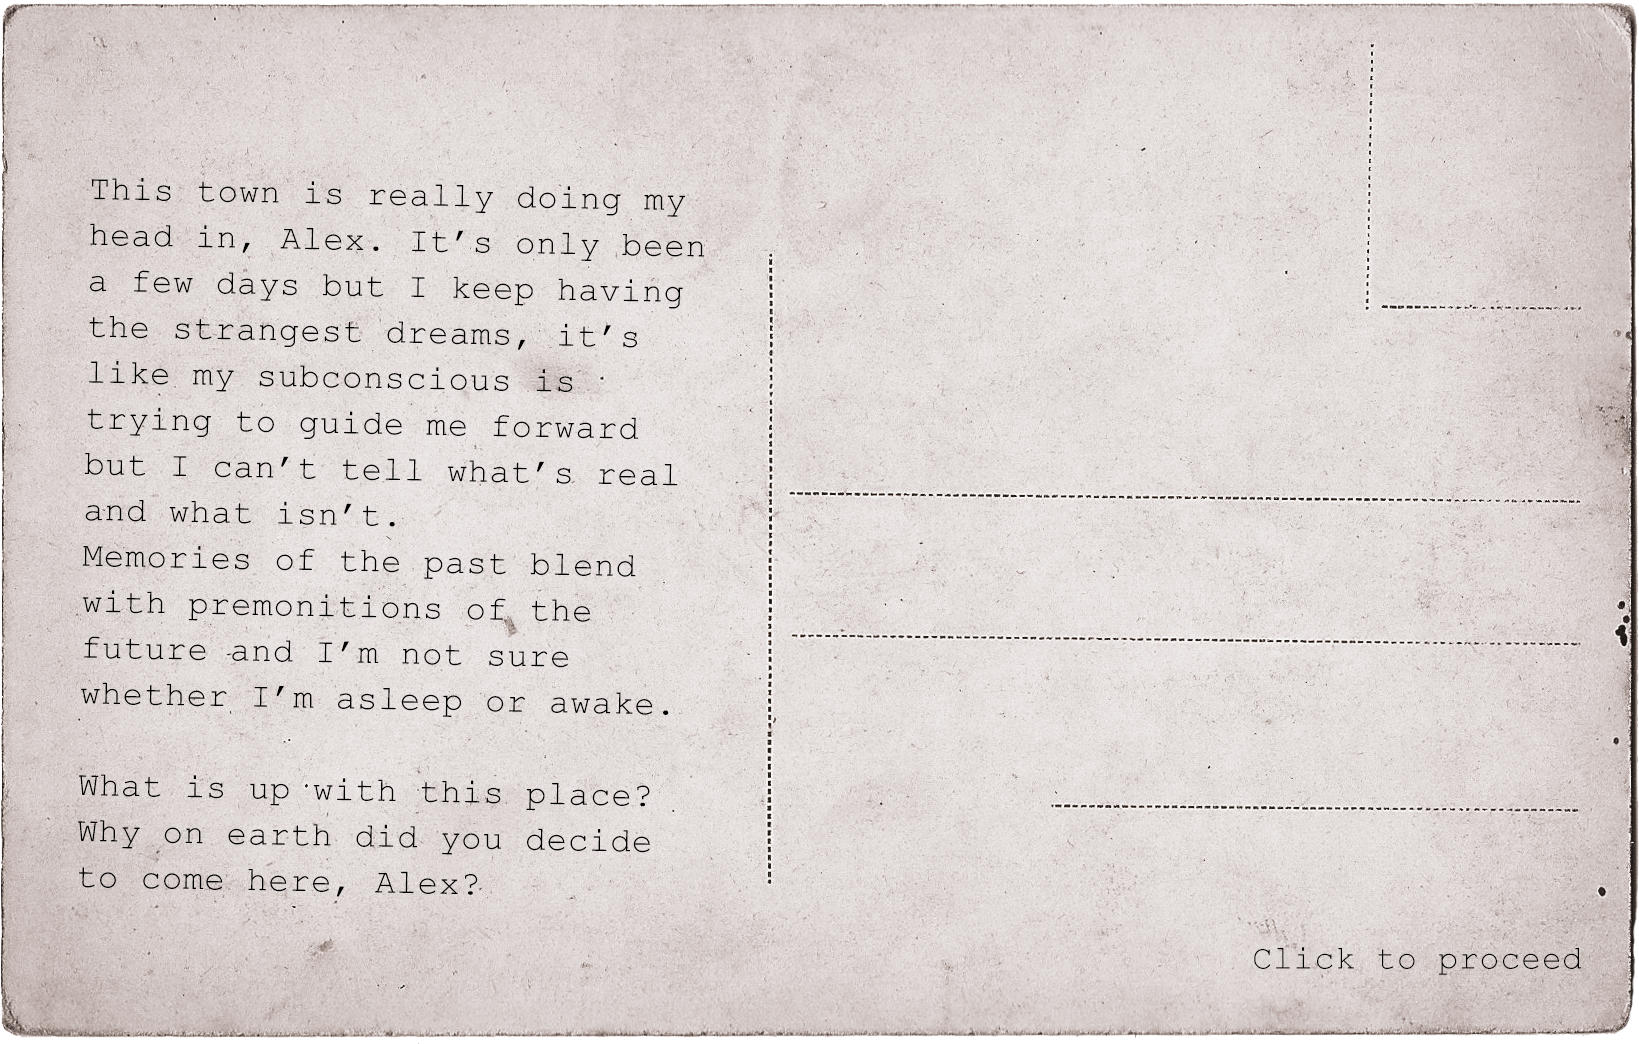 This town is really doing my
head in, Alex. It's only been
a few days but I keep having
the strangest dreams, it's
like my subconscious is
trying to guide me forward
but I can't tell what's real
and what isn't.
Memories of the past blend
with premonitions of the
future and I'm not sure
whether I'm asleep or awake.
What is up with this place?
Why on earth did you decide
to come here, Alex?
Click to proceed